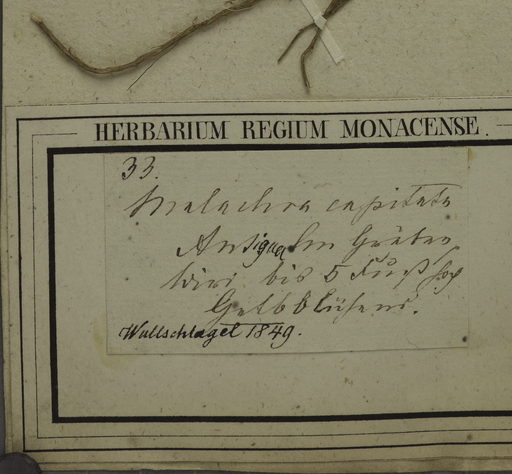 HERBARIUM REGIUM MONACENSE.
33.
Malachra capitata
Antigua Im Gräben
wird bis 5 Fuß hoch
Gelbblühend.
Wullschlaegel 1849.